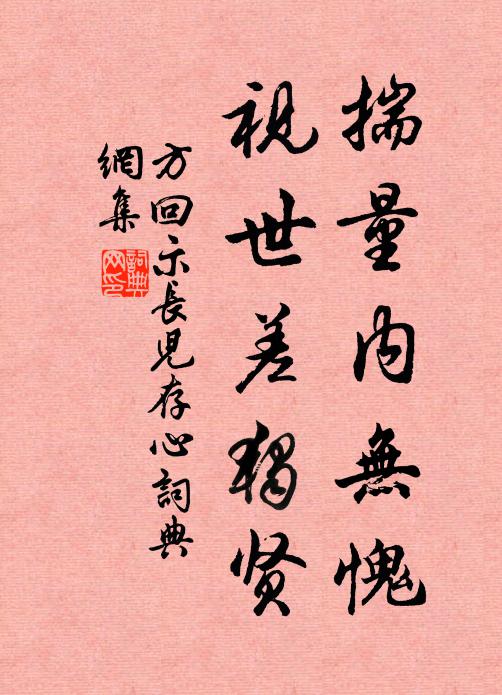 揣量内無愧
視世差獨贤
方回示長兒存心詞典
網集
詞典网印